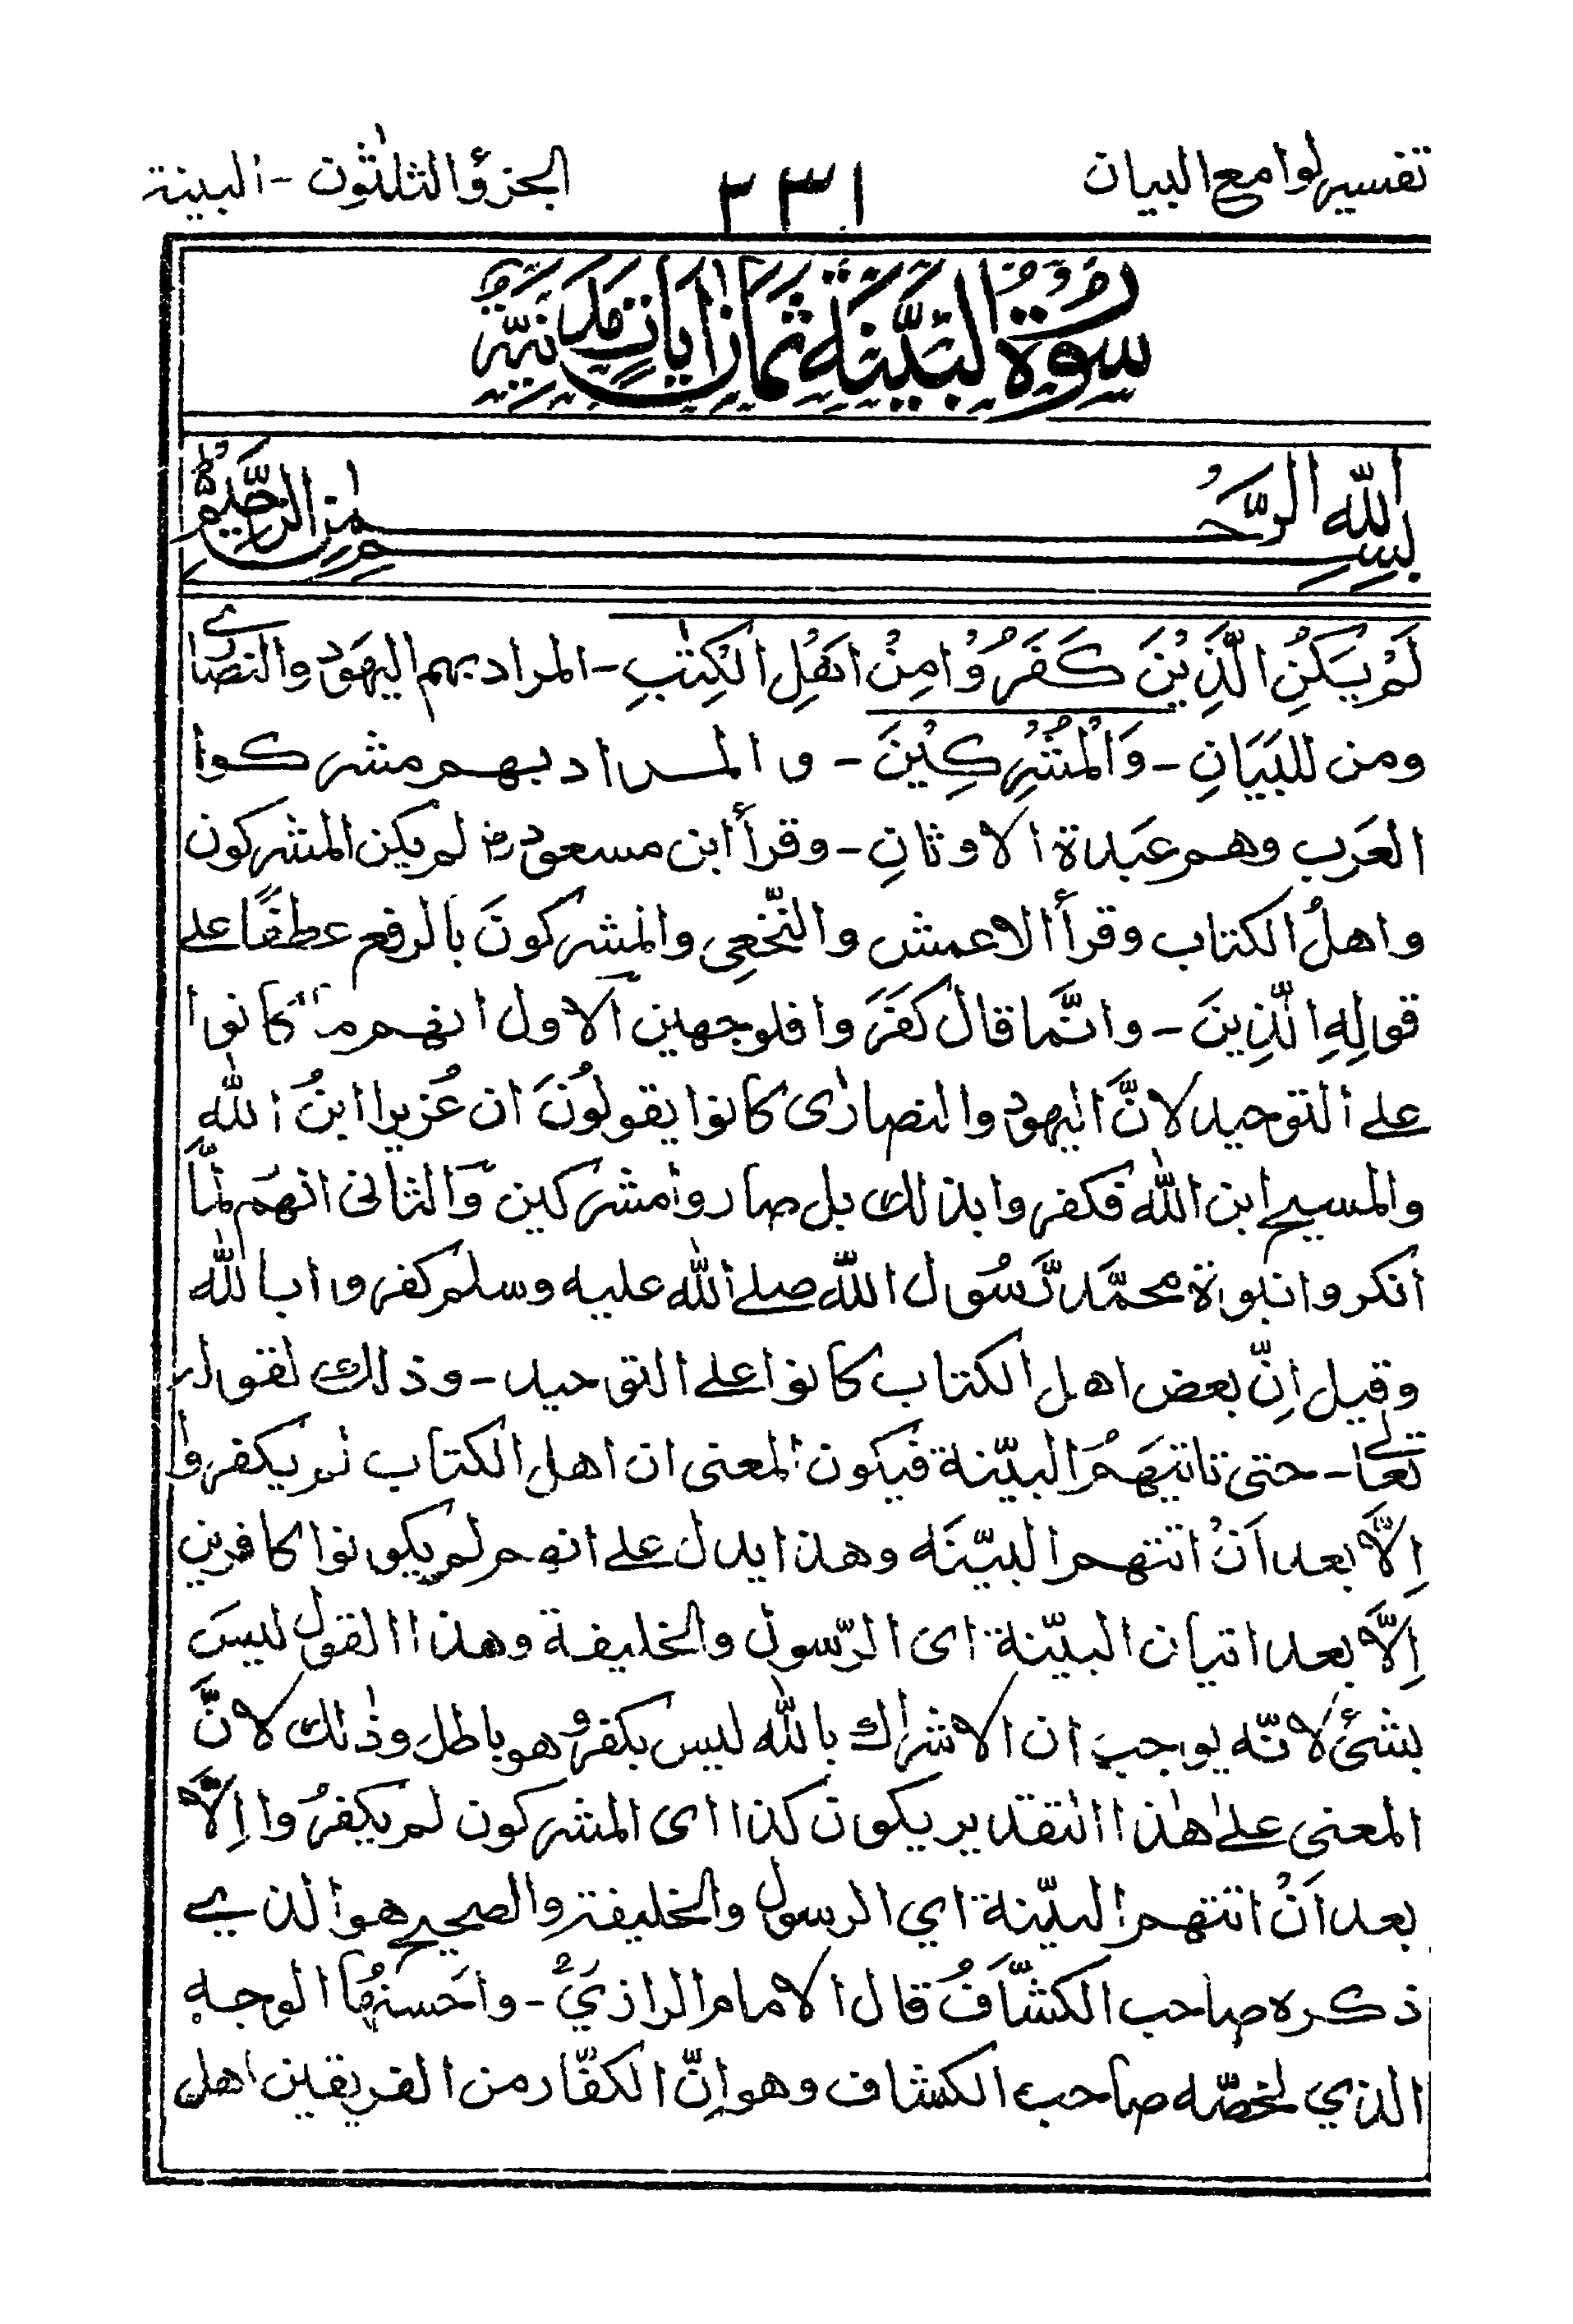 تفسير لوامع البيان ٢٣١ الجزؤ الثلثون - البينة
سورة البينة ثمان ايات مدنية
بسم الله الرحمن الرحيم
لَمْ يَكُنِ الَّذِيْنَ كَفَرُوْا مِنْ اَهْلِ الْكِتٰبِ - المراد بهم اليهود والنصارى
ومن للبَيَانِ - وَالْمُشْرِكِيْنَ - و المراد بهم مشركوا
العَرَب وهم عَبدة الاوثانِ - وقرأ ابن مسعود رض لم يكن المشركون
واهلُ الكتاب وقرأ الاعمش والنّخعِي والمشركونَ بالرفع عطفًا على
قولِهِ الّذِينَ - وانَّما قال كفَرَوا فلوجهين الاول انهم ما كانوا
على التوحيد لانَّ اليهود والنصارٰى كانوا يقولُونَ ان عُزيرا ابنُ الله
والمسيح ابن الله فكفروا بذلك بل صاروا مشركين والثانى انهم لمّا
انكروا نبوة محمّد رَّسُول الله صلے الله عليه وسلم كفروا بالله
وقيل اِنّ بعض اهل الكتاب كانوا على التوحيد - وذلك لقوله
تعالے - حتى تاتيَهمُ البيّنة فيكون المعنى ان اهل الكتاب لم يكفروا
اِلاَّ بعد اَنْ اتتهم البيّنَه وهذا يدل على انهم لم يكونوا كافرين
اِلاَّ بعد اتيان البيّنة اى الرّسول والخليفة وهذا القول ليسَ
بشئ لانّه يوجب ان الاشراك بالله ليس بكفر وهو باطل وذٰلك لانَّ
المعنى علےٰ هٰذا التقدير يكون كذا اى المشركون لم يكفرُوا اِلاَّ
بعد اَنْ اتتهم البيّنة اي الرسول والخليفة والصحيح هو الذي
ذكره صاحب الكشّاف قال الامام الرازيؒ - واحَسنهُا الوجه
الذي لخصّه صاحب الكشاف وهو اِنّ الكفّار من الفريقين اهل